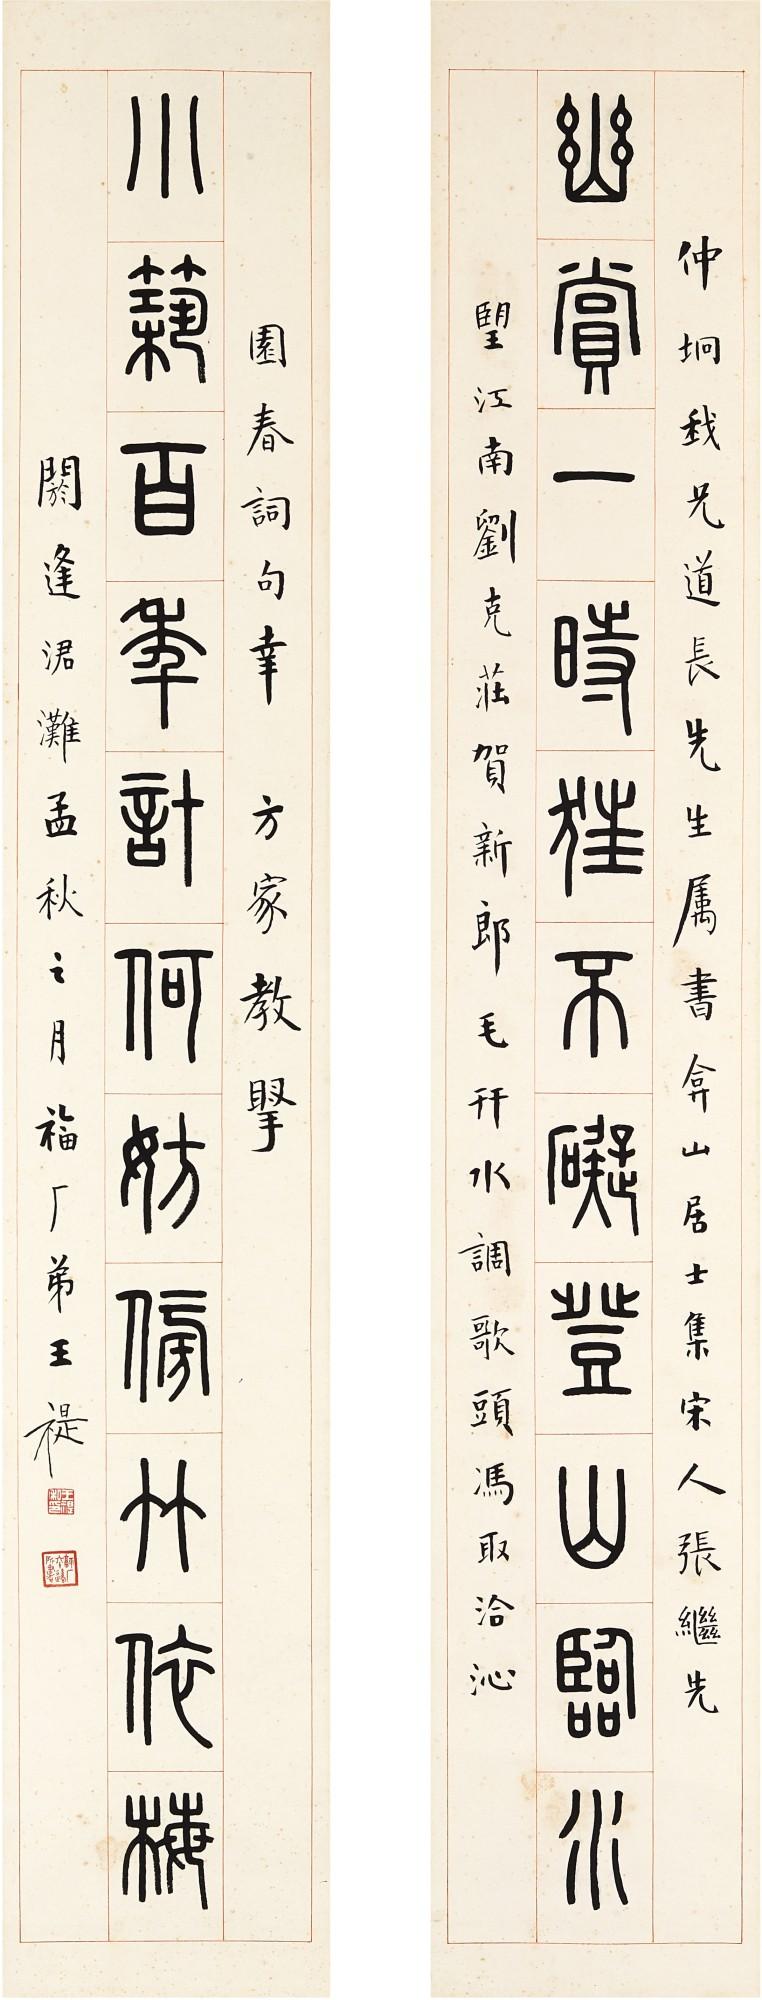 仲坰我兄道長先生属書弇山居士集宋人張繼先
幽賞一時狂不礙登山臨水
朢江南劉克莊賀新郎毛幵水調歌頭馮取洽沁
園春詞句幸 方家教掔
小築百年計何妨傍竹依梅
閼逢涒灘孟秋之月福厂弟王禔